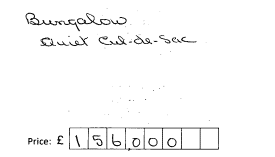 Bungalow
Quiet Cul-de-Sac
Price: £ 156,000